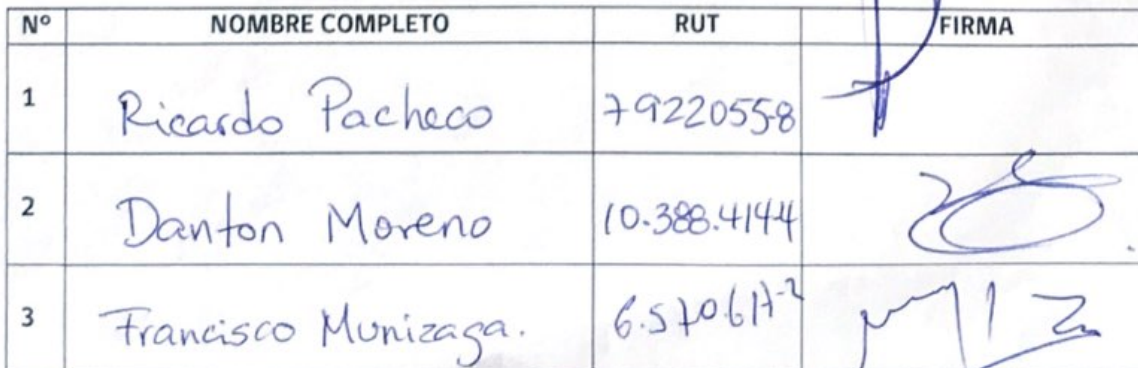 N° NOMBRE COMPLETO RUT FIRMA
1 Ricardo Pacheco 79220558
2 Danton Moreno 10.388.4144
3 Francisco Munizaga. 6.570.617-2